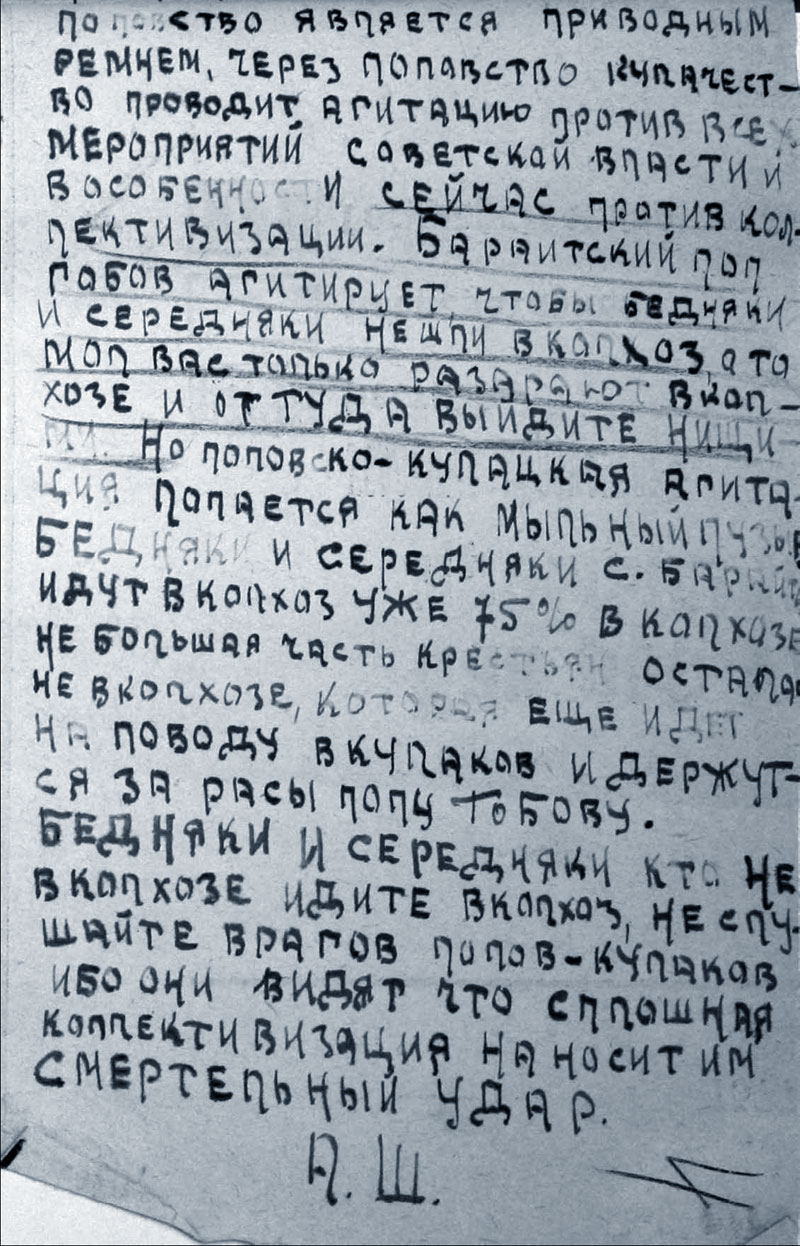 поповство является приводным
ремнем, через поповство кулачест-
во проводит агитацию против всех
мероприятий советской власти и
в особенности сейчас против кол-
лективизации. Бараитский поп
Гобов агитирует, чтобы бедняки
и середняки нешли в колхоз, а то
мол вас только разарают в кол-
хозе и оттуда выйдите нищи-
ми. Но поповско-кулацкая агита-
ция лопается как мыльный пузы
бедняки и середняки с. Барайт
идут в колхоз уже 75% в колхозе
не большая часть крестьян остала
не в колхозе, которая еще идет
на поводу в кулаков и держут-
ся за расы попу Гобову.
Бедняки и середняки кто не
в колхозе идите в колхоз, не слу-
шайте врагов попов-кулаков
ибо они видят что сплошная
коллективизация наносит им
смертельный удар.
А. Ш.